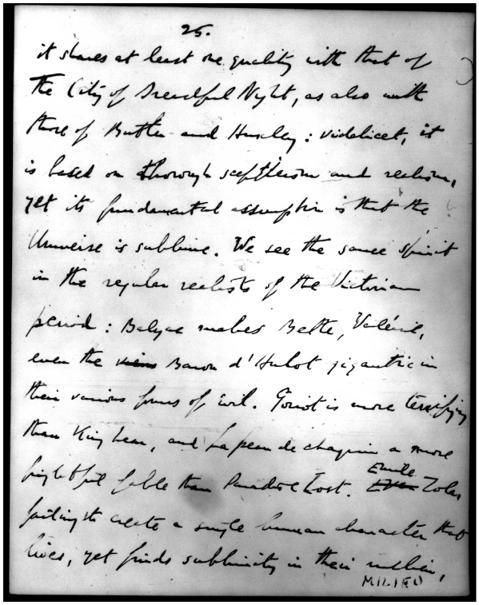 25.
it shares at least one quality with that of
The City of Dreadful Night, as also with
those of Butler and Huxley: videlicet, it
is based on thorough scepticism and realism,
yet its fundamental assumption is that the
Universe is sublime. We see the same spirit
in the regular realists of the Victorian
period: Balzac makes Bette, Valérie,
even the Baron d'Hulot gigantic in
their various forms of evil. Goriot is more terrifying
than King Lear, and La peau de chagrin a more
frightful fable than Paradise Lost. Emile Zola,
failing to create a single human character that
lives, yet finds sublimity in their
MILIEU